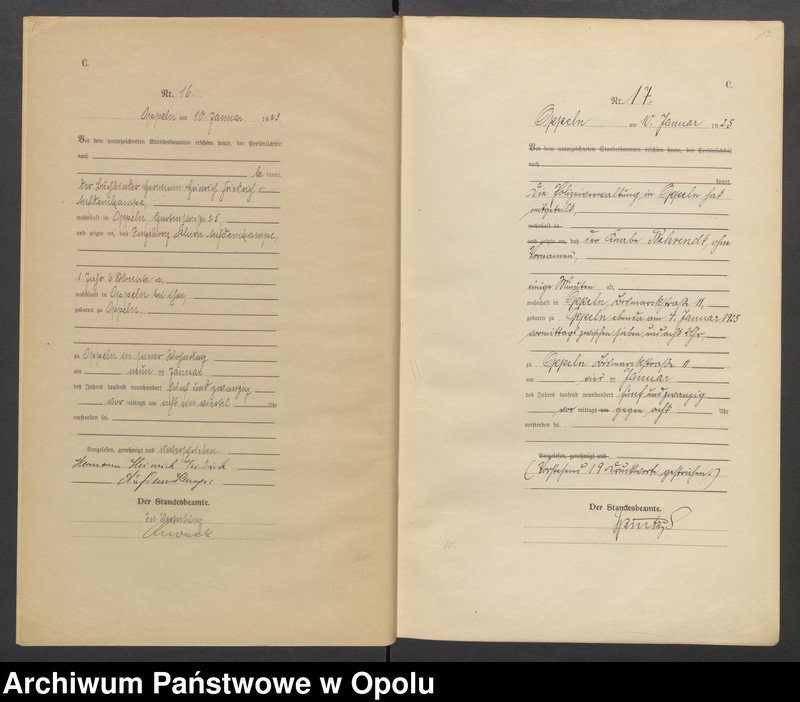 C.
Nr. 16
Oppeln am 10. Januar 1925
Vor dem unterzeichneten Standesbeamten erschien heute, der Persönlichkeit
nach
be kannt,
der Buchbinder Hermann Heinrich Friedrich
Aufdemkampe,
wohnhaft in Oppeln, 25
und zeigte an, daß Aufdemkampe,
1 Jahr 6 Monate alt
wohnhaft in Oppeln bei ihm,
geboren zu Oppeln,
zu Oppeln in seiner Wohnung
am neun ten Januar
des Jahres tausend neunhundert fünf und zwanzig
vor mittags um acht ein viertel Uhr
verstorben sei.
Vorgelesen, genehmigt und unterschrieben
Hermann Heinrich Friedrich
Aufdemkampe
Der Standesbeamte.
In Vertretung
C.
Nr. 17.
Oppeln am 10. Januar 1925
Vor dem unterzeichneten Standesbeamten erschien heute, der Persönlichkeit
nach
kannt,
Die Polizeiverwaltung in Oppeln hat
mitgeteilt,
wohnhaft in
und zeigte an, daß der Knabe Behrendt, ohne
Vornamen,
einige Minuten alt,
wohnhaft in Oppeln, Bismarckstraße 11,
geboren zu Oppeln ebenda am 4. Januar 1925
vormittags zwischen sieben und acht Uhr,
zu Oppeln Bismarckstraße 11
am vier ten Januar
des Jahres tausend neunhundert fünf und zwanzig
vor mittags um gegen acht Uhr
verstorben sei.
Vorgelesen, genehmigt und
(Vorstehend 19 Druckworte gestrichen.)
Der Standesbeamte.
Archiwum Państwowe w Opolu